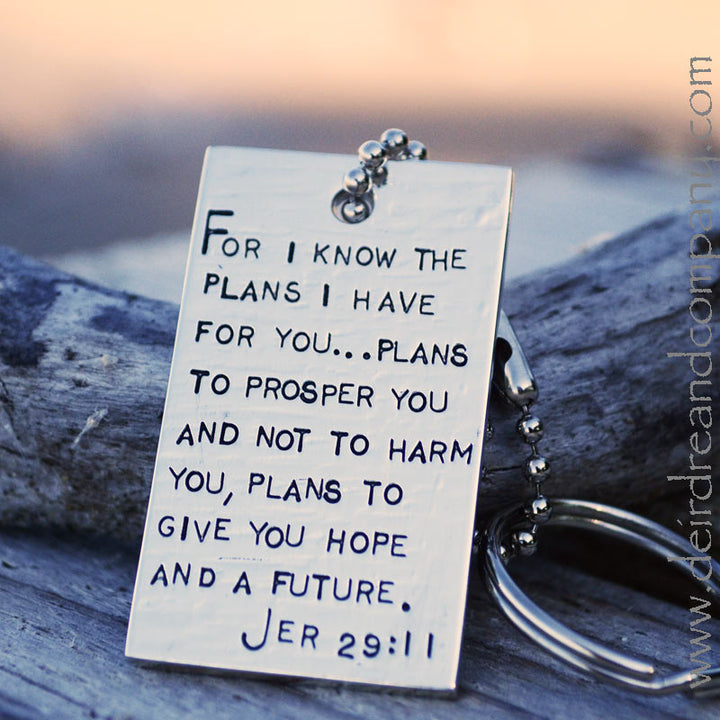 FOR I KNOW THE
PLANS I HAVE
FOR YOU...PLANS
TO PROSPER YOU
AND NOT TO HARM
YOU, PLANS TO
GIVE YOU HOPE
AND A FUTURE.
JER 29:11
www.deirdreandcompany.com